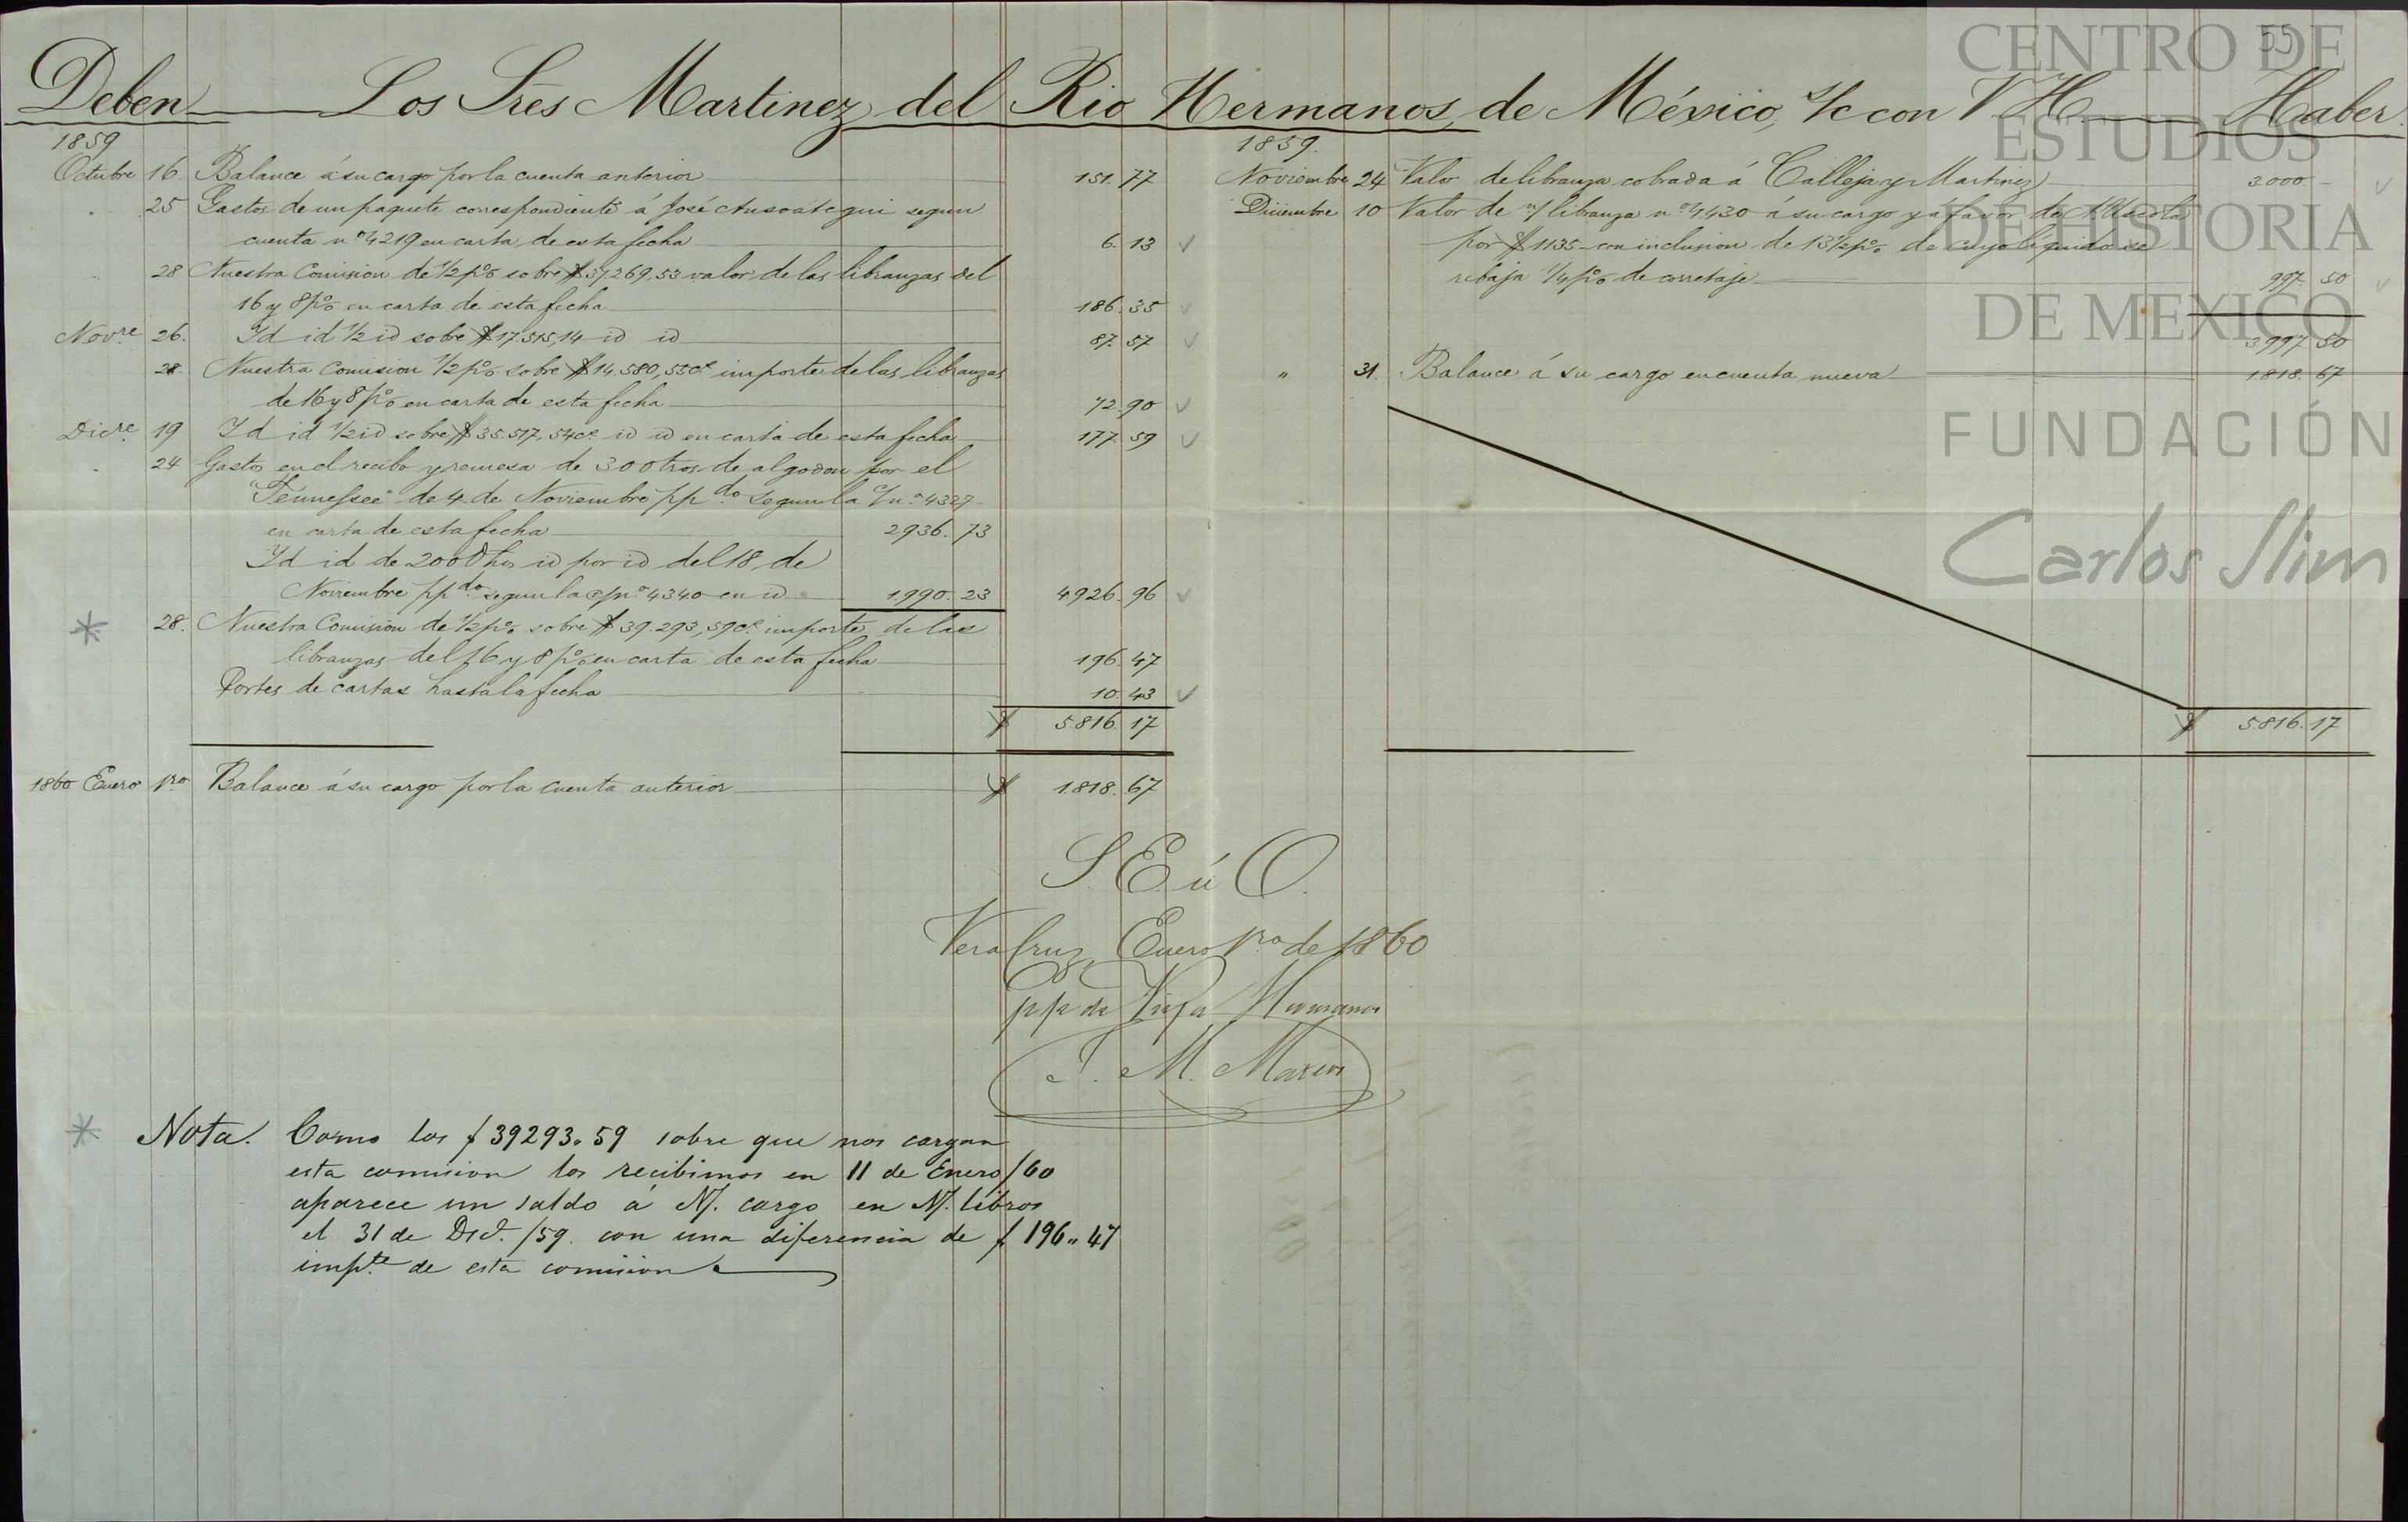 55
Deben Los Sres Martinez del Rio Hermanos, de México, s/c con V H Haber
1859
Octubre 16. Balance á su cargo por la cuenta anterior 151. 77
" 25 Gastos de un paquete correspondiente á José Ansoategui segun
cuenta nº 4219 en carta de esta fecha 6. 13
" 28 Nuestra Comision de 1/2 p% sobre $ 37,269,53 valor de las libranzas del
16 y 8 p% en carta de esta fecha 186. 35
Novre 26. Id id 1/2 id sobre $ 17.515,14 id id 87. 57
28. Nuestra Comision 1/2 p% sobre $ 14.580,55 cs importe de las libranzas
de 16 y 8 p% en carta de esta fecha 72. 90
Dicre 19 Id id 1/2 id sobre $ 35.517,54 cs id id en carta de esta fecha 177. 59
" 24 Gastos en el recibo y remesa de 300 tros de algodon por el
"Tennessee" de 4 de Noviembre pp do segun la c/ nº 4327
en carta de esta fecha 2,936. 73
Id id de 200 id por id del 18 de
Noviembre pp do segun la c/ nº 4340 en id 1,990. 23 4926. 96
28. Nuestra Comision de 1/2 p% sobre $ 39.293,59 cs importe de las
libranzas del 16 y 8 p% en carta de esta fecha 196. 47
Portes de cartas hasta la fecha 10. 43
$ 5.816. 17
1860 Enero 1ro Balance á su cargo por la cuenta anterior $ 1.818. 67
1859.
Noviembre 24 Valor de libranza cobrada á Calleja y Martinez 3000 -
Diciembre 10 Valor de n/ libranza nº 4430 á su cargo y á favor de
por $ 1135 - con inclusion de 13 1/2 p% de cuyo liquido se
rebaja 1/4 p% de corretaje 997. 50
3997 50
" 31. Balance á su cargo en cuenta nueva 1818. 67
$ 5.816. 17
S. E. ú O.
VeraCruz, Enero 1ro de 1860
pp de Viya Hermanos
J. M.
Nota. Como los $ 39293.59 sobre que nos cargan
esta comision los recibimos en 11 de Enero/60
aparece un saldo á N/. cargo en N/. libros
el 31 de Dic. /59. con una diferencia de $ 196.. 47
impte de esta comision
CENTRO DE
ESTUDIOS
DE HISTORIA
DE MEXICO
FUNDACIÓN
Carlos Slim